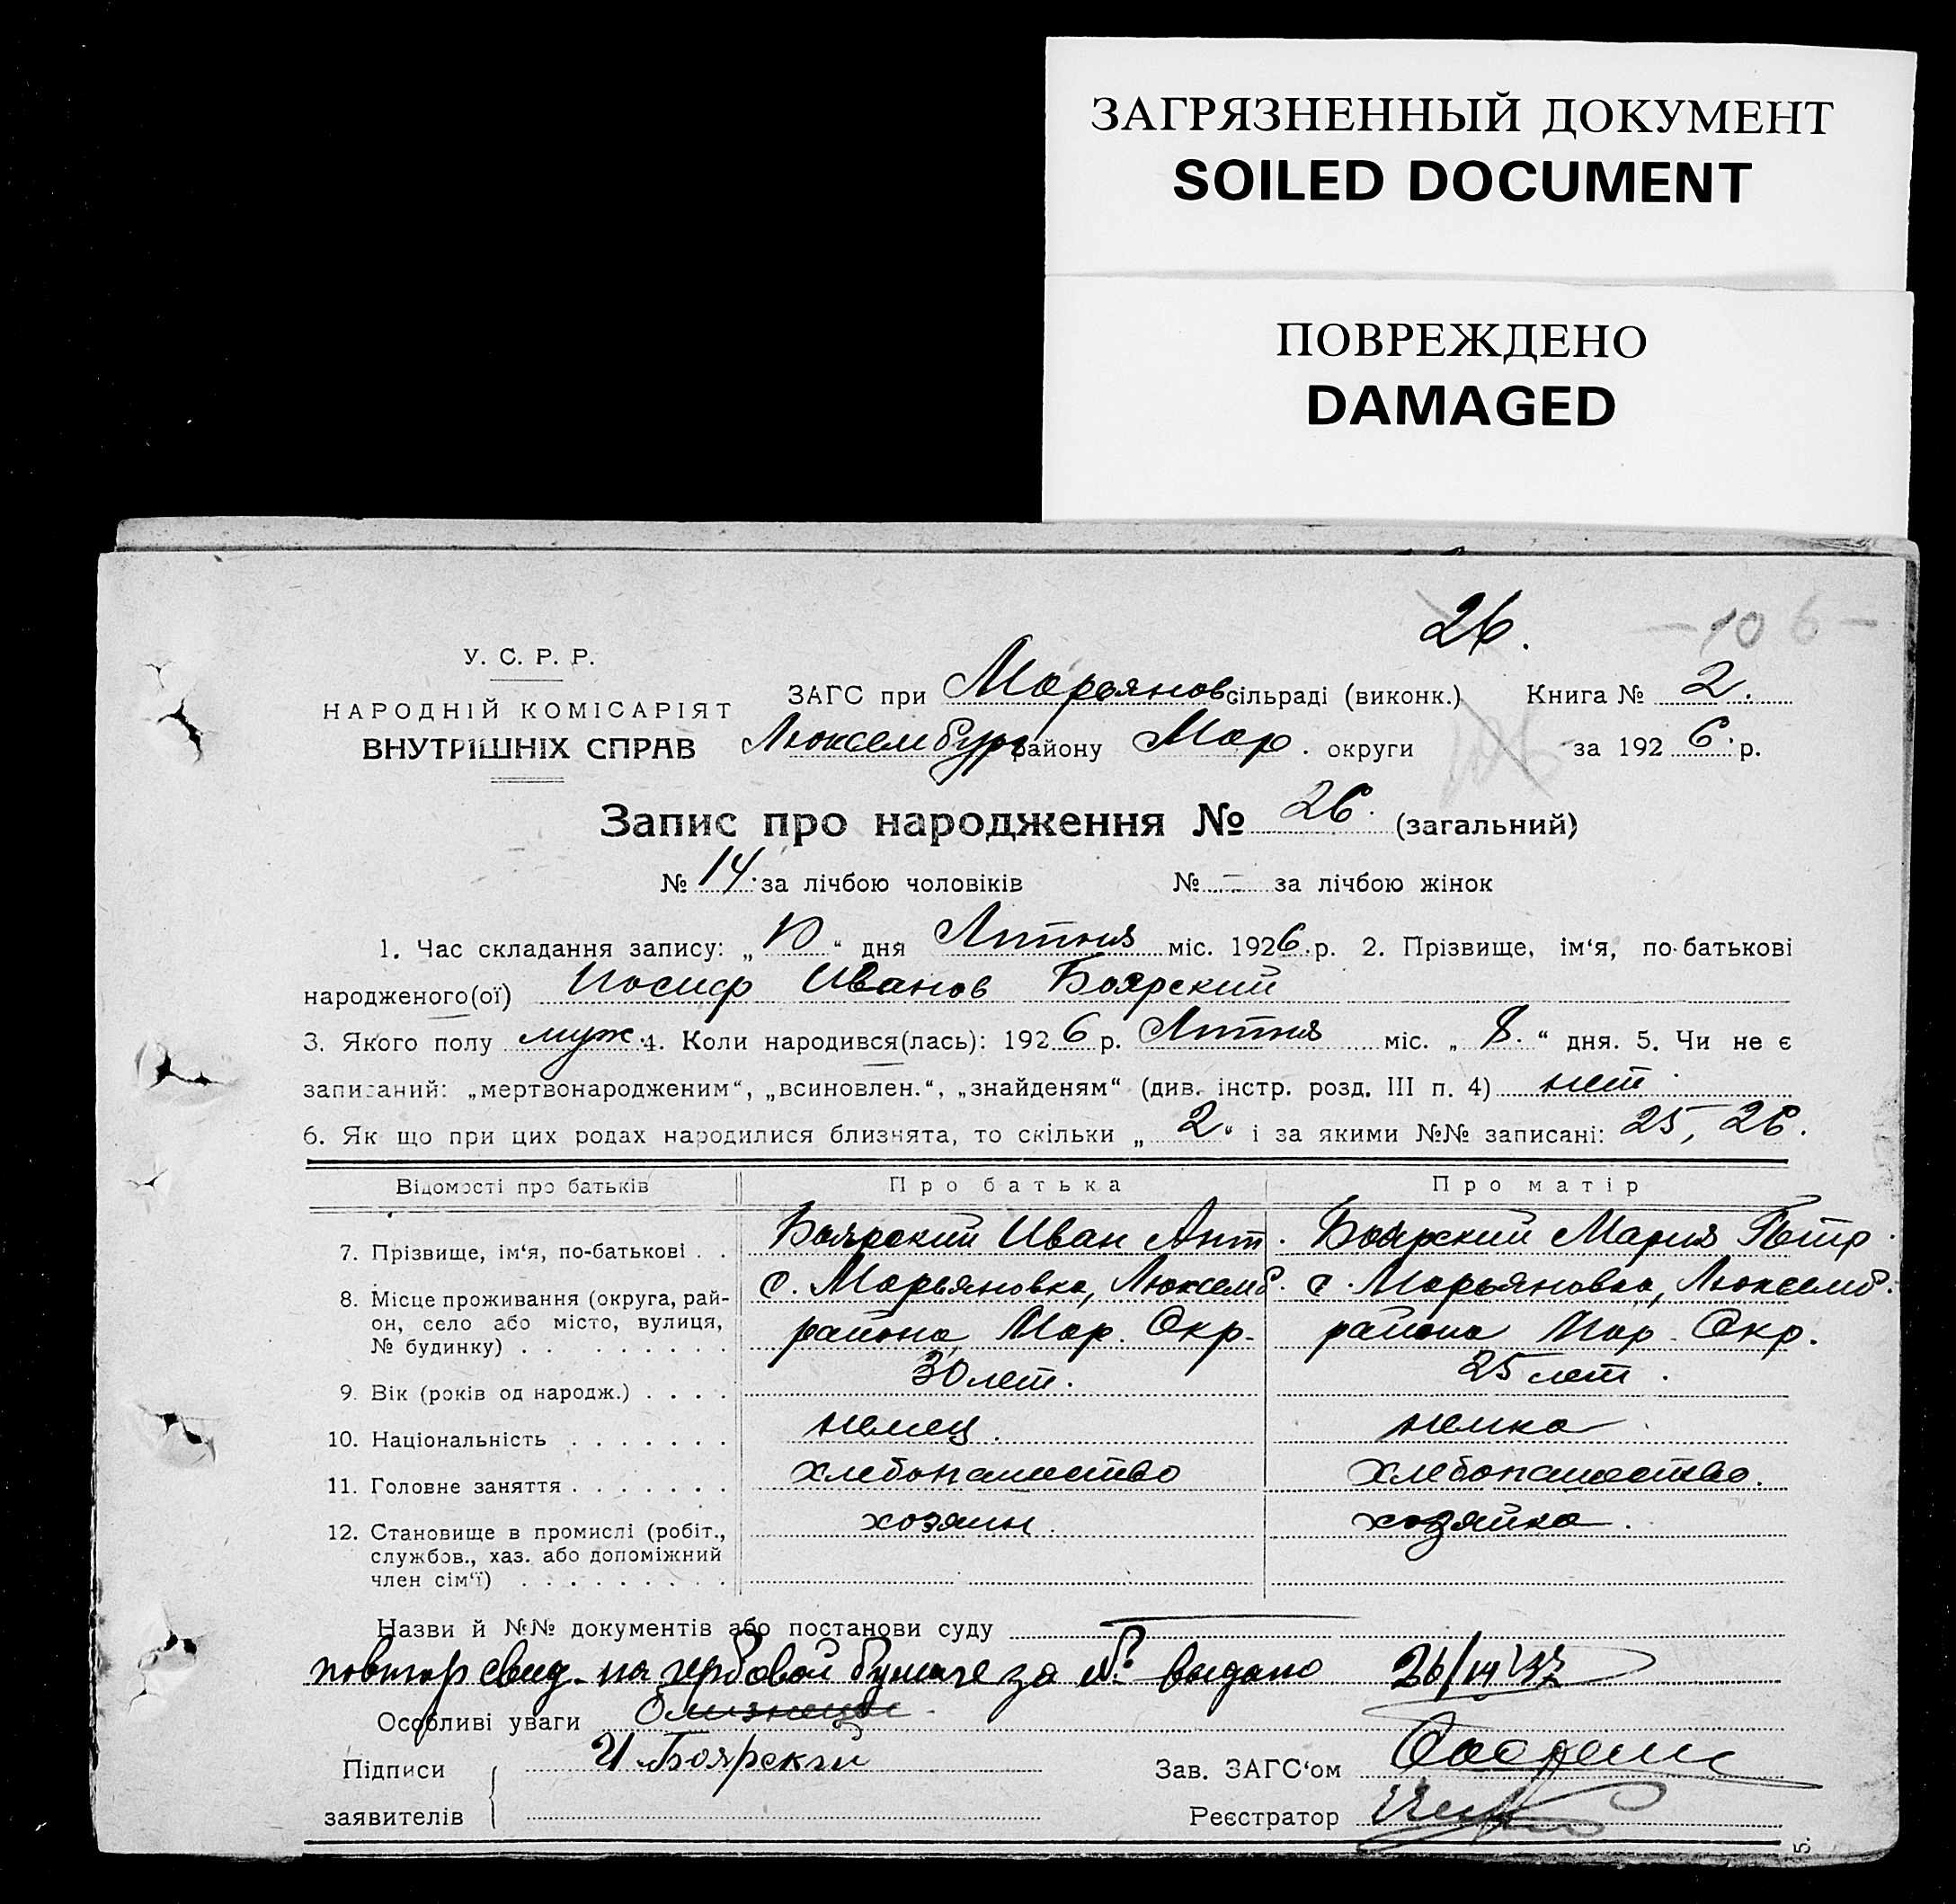 ЗАГРЯЗНЕННЫЙ ДОКУМЕНТ
SOILED DOCUMENT
ПОВРЕЖДЕНО
DAMAGED
26. –106–
У. С. Р. Р.
НАРОДНІЙ КОМІСАРІЯТ
ВНУТРІШНІХ СПРАВ
ЗАГС при Марьянов сільраді (виконк.) Книга № 2.
Люксембург району Мар. округи за 1926. р.
Запис про народження № 26. (загальний)
№ 14. за лічбою чоловіків № – за лічбою жінок
1. Час складання запису: „10“ дня Липня міс. 1926. р. 2. Прізвище, ім‘я, по-батькові
народженого(ої) Иосиф Иванов Боярский
3. Якого полу муж. 4. Коли народився(лась): 1926 р. Липня міс. „8.“ дня. 5. Чи не є
записаний: „мертвонародженим“, „всиновлен.“, „знайденям“ (див. інстр. розд. III п. 4) нет.
6. Як що при цих родах народилися близнята, то скільки „2“ і за якими №№ записані: 25, 26.
Відомості про батьків Про батька Про матір
7. Прізвище, ім‘я, по-батькові . . Боярский Иван Ант. Боярский Мария Петр.
8. Місце проживання (округа, рай- с. Марьяновка, Люксемб. с. Марьяновка, Люксемб.
он, село або місто, вулиця, района Мар. Окр. района Мар. Окр.
№ будинку) . . . . . . . . .
9. Вік (років од народж.) . . . . 30 лет. 25 лет.
10. Національність . . . . . . . немец. немка
11. Головне заняття . . . . . . . хлебопашество хлебопашество.
12. Становище в промислі (робіт., хозяин. хозяйка.
службов., хаз. або допоміжний
член сім‘ї) . . . . . . . . .
Назви й №№ документів або постанови суду
повтор свид. на гербовой бумаге за № выдано
Особливі уваги близнецы.
Підписи И Боярский Зав. ЗАГС‘ом
заявителів Реєстратор
5.